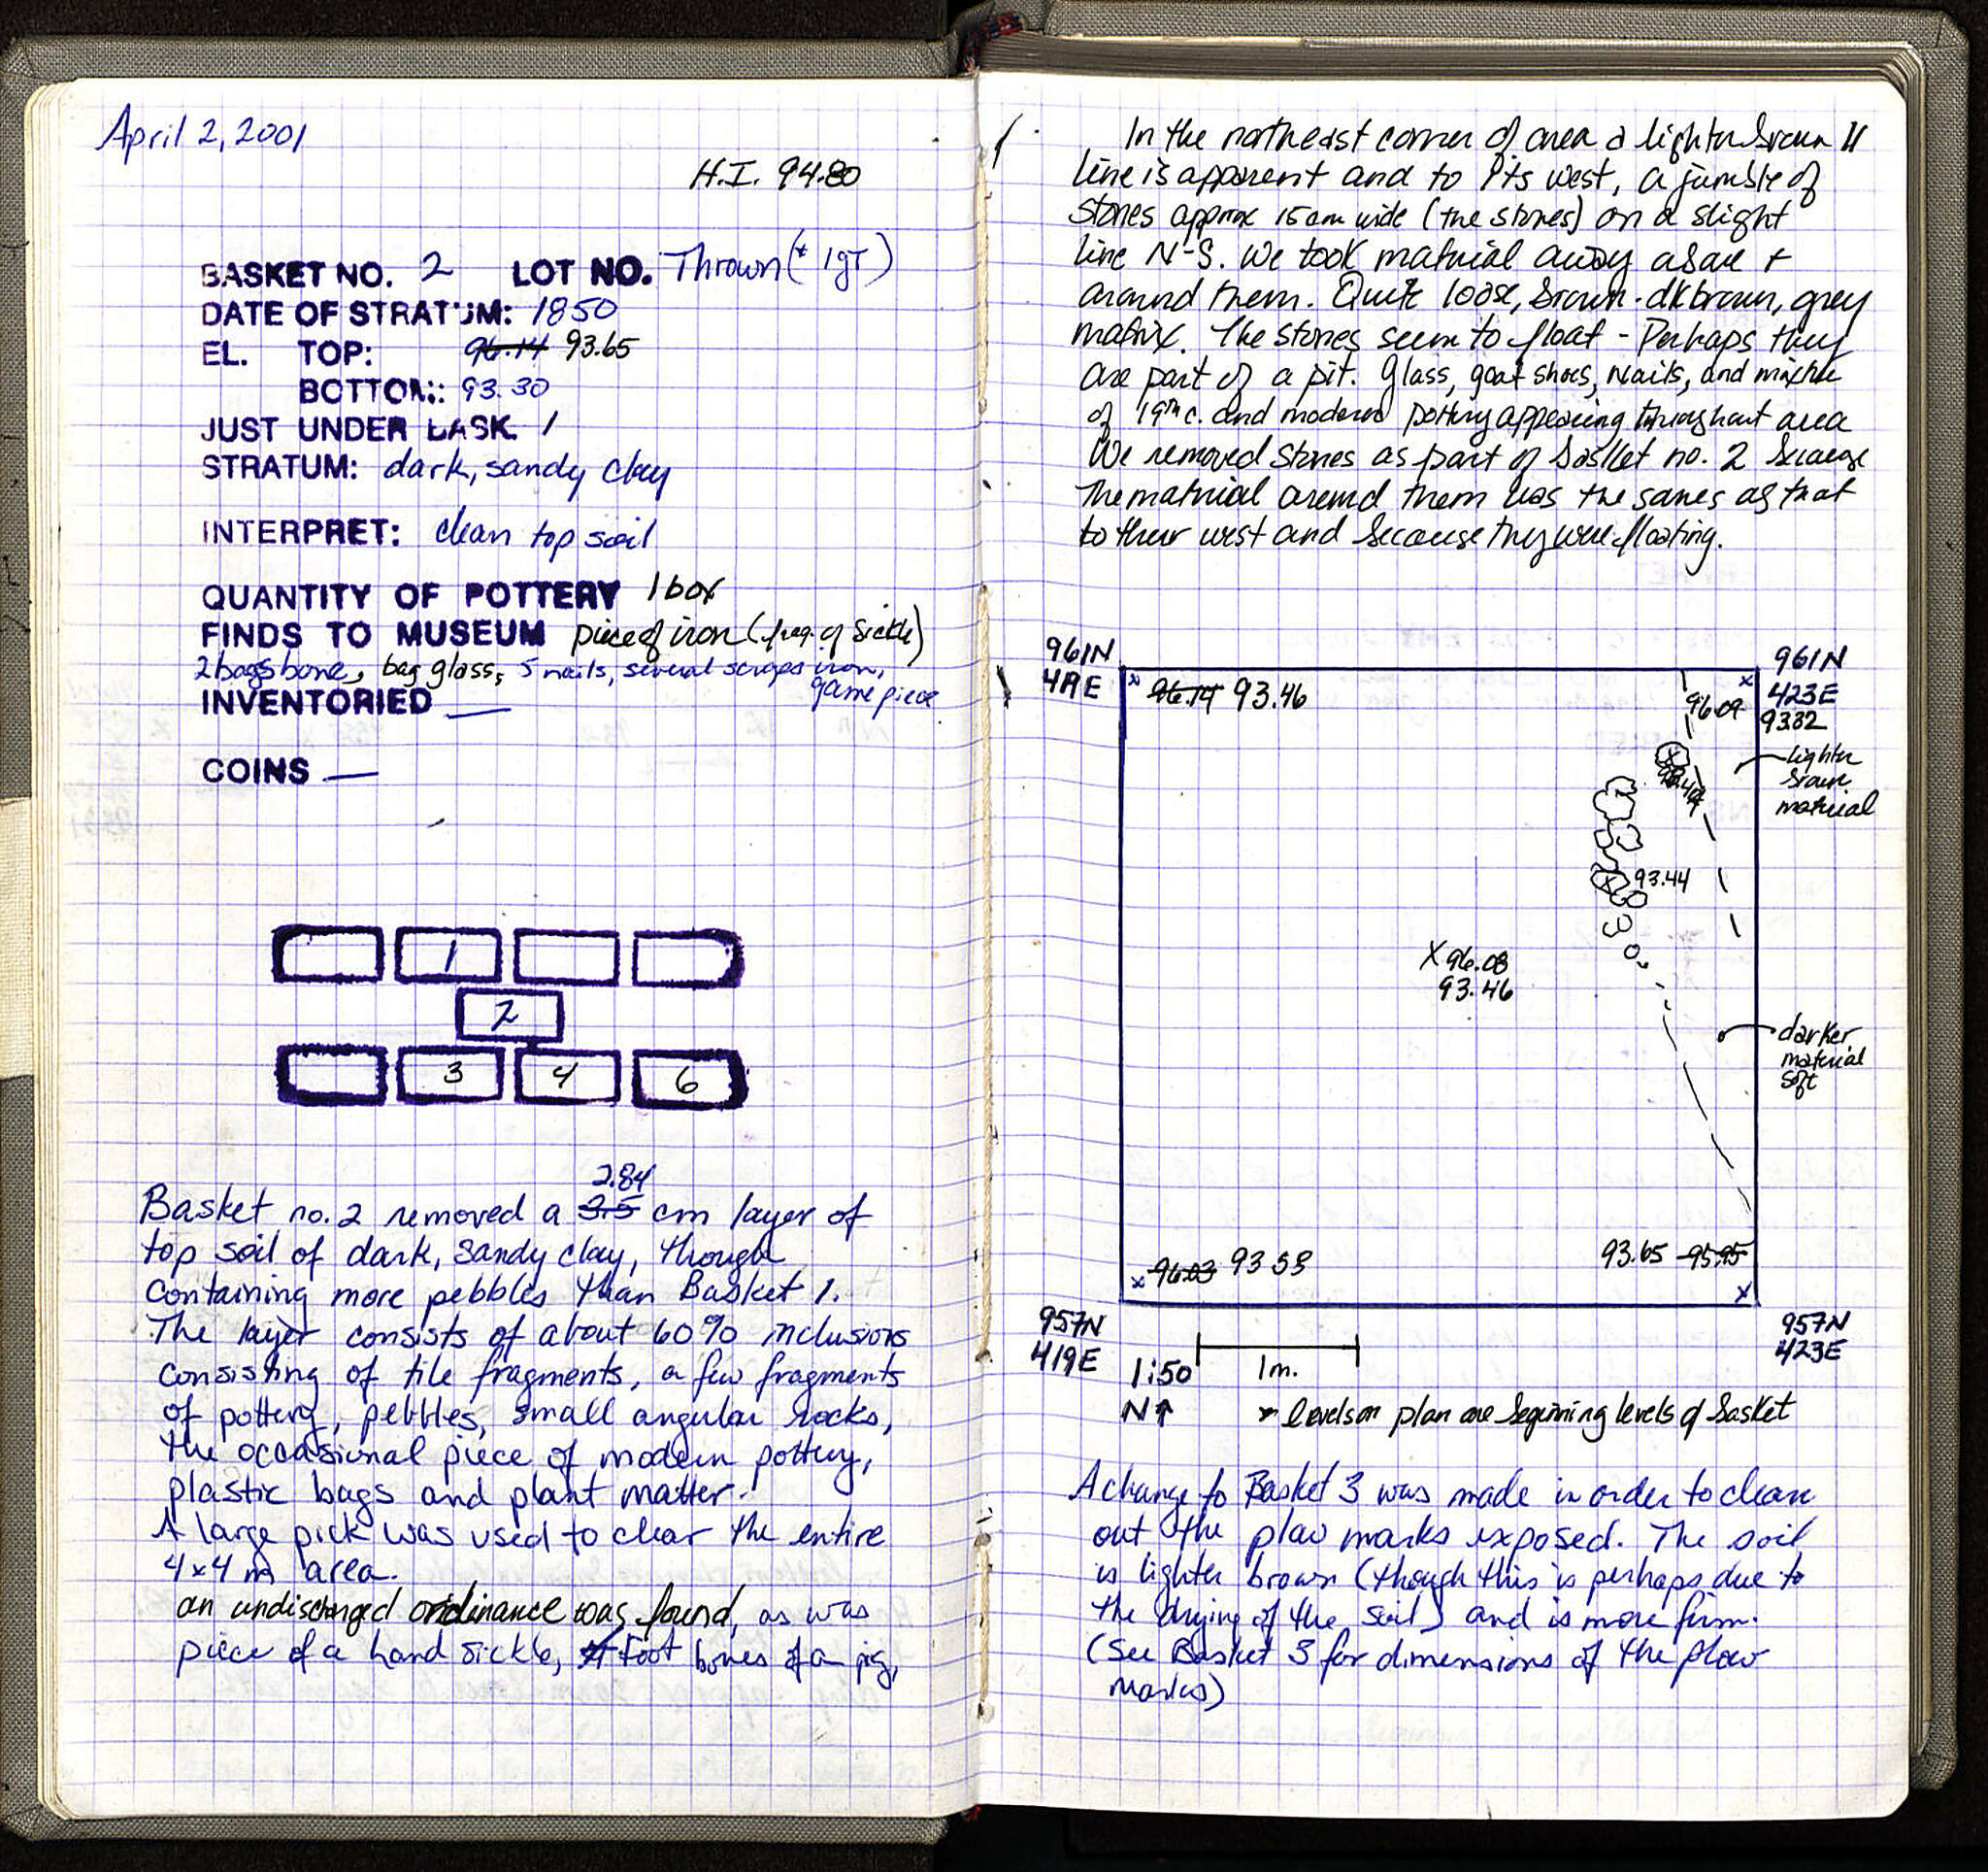 April 2, 2001
H.I. 94.80
BASKET NO. 2 LOT NO. Thrown (+ 1gT)
DATE OF STRATUM: 1850
EL. TOP: 96.14 93.65
BOTTOM: 93.30
JUST UNDER BASK. 1
STRATUM: dark, sandy clay
INTERPRET: clean top soil
QUANTITY OF POTTERY 1 box
FINDS TO MUSEUM piece of iron (frag. of sickle)
2 bags bone, bag glass, 5 nails, several scraps iron,
game piece
INVENTORIED —
COINS —
1
2
3 4 6
2.84
Basket no. 2 removed a 3.5 cm layer of
top soil of dark, sandy clay, though
containing more pebbles than Basket 1.
The layer consists of about 60% inclusions
consisting of tile fragments, a few fragments
of pottery, pebbles, small angular rocks,
the occasional piece of modern pottery,
plastic bags and plant matter.
A large pick was used to clear the entire
4x4 m area.
an undischarged ordinance was found, as was
piece of a hand sickle, foot bones of a pig,
11
In the northeast corner of area a lighter brown
line is apparent and to its west, a jumble of
stones approx 15 cm wide (the stones) on a slight
line N-S. We took material away above +
around them. Quite loose, brown-dk brown, grey
matrix. The stones seem to float - Perhaps they
are part of a pit. Glass, goat shoes, nails, and mixture
of 19th c. and modern pottery appearing throughout area
We removed stones as part of basket no. 2 because
the material around them was the same as that
to their west and because they were floating.
961N
419E
96.14 93.46
96.09
961N
423E
93.32
lighter
brown
material
93.44
X 96.08
93.46
darker
material
soft
96.03 93.58
93.65 95.95
957N
419E
957N
423E
1:50
1m.
N↑
* levels on plan are beginning levels of basket
A change to Basket 3 was made in order to clean
out the plow marks exposed. The soil
is lighter brown (though this is perhaps due to
the drying of the soil) and is more firm.
(See Basket 3 for dimensions of the plow
marks)